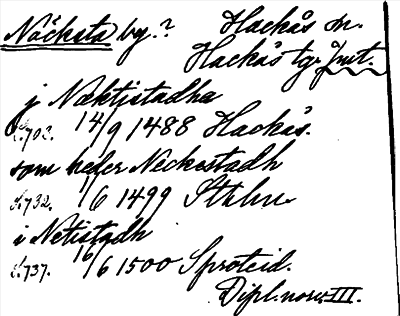 Näcksta by.? Hackås sn.
Hackås tg. Jmt.
j Næktistadha
s. 703. 14/9 1488 Hackås.
som heder Neckestadh
s. 732. 1/6 1499 Sthlm.
i Netistadh
s. 737. 16/6 1500 Sproteid.
Dipl. norv. III.